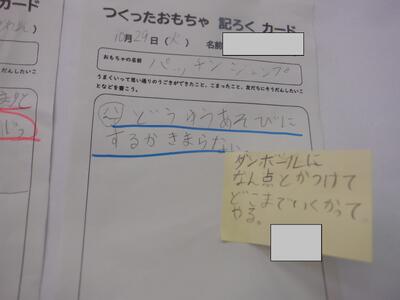 つくったおもちゃ 記ろく カード
10月29日(火) 名前
おもちゃの名前
パッチンジャンプ
うまくいって思い通りのうごきができたこと、こまったこと、友だちにそうだんしたいこ
となどを書こう。
どうゆうあそびに
するか きまらない。
ダンボールに
なん点とかつけて
どこまでいくかって
やる。
カード